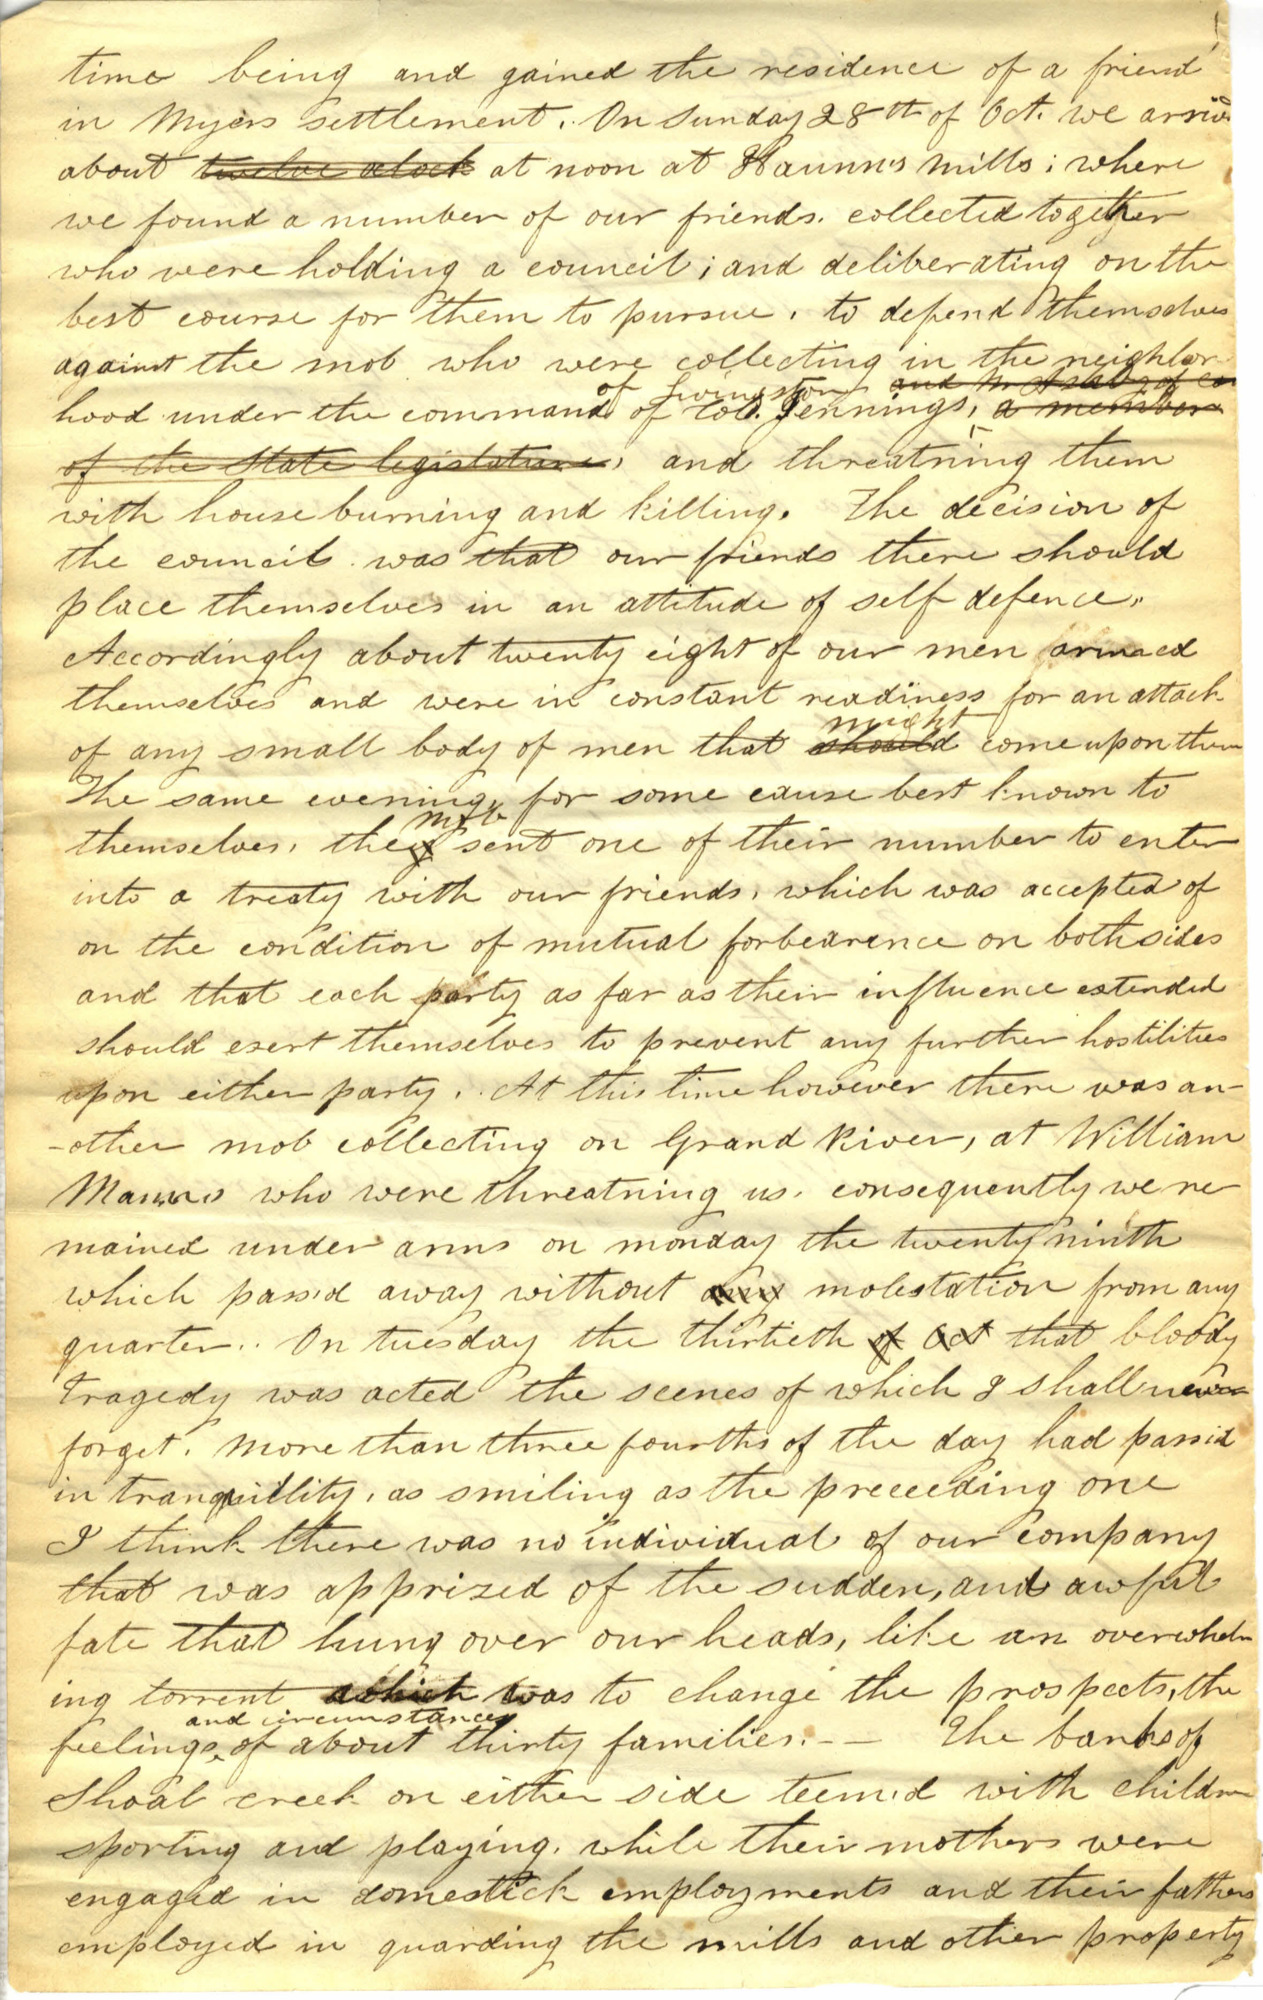 time being and gained the residence of a friend
in Myers settlement. On Sunday 28th of Oct. we arriv
about twelve oclock at noon at Haunn's mills; where
we found a number of our friends. collected together
who were holding a council; and deliberating on the
best course for them to pursue. to defend themselves
against the mob who were collecting in the neighbor
of Livingston and
hood under the command of Col. Jennings, a member
of the State legislature, and threatning them
with house burning and killing. The decision of
the council was that our friends there should
place themselves in an attitude of self defence.
Accordingly about twenty eight of our men armed
themselves and were in constant readiness for an attack
might
of any small body of men that should come upon them
The same evening, for some cause best known to
mob
themselves, they sent one of their number to enter
into a treaty with our friends, which was accepted of
on the condition of mutual forbearence on both sides
and that each party as far as their influence extended
should exert themselves to prevent any further hostilities
upon either party. At this time however there was an-
-other mob collecting on Grand River, at William
Manns who were threatning us. consequently we re
mained under arms on monday the twenty ninth
which passd away without any molestation from any
quarter. On tuesday the thirtieth of Oct that bloody
tragedy was acted the scenes of which I shall never
forget. More than three fourths of the day had passid
in tranquillity, as smiling as the preceeding one
I think there was no individual of our company
that was apprized of the sudden, and awful
fate that hung over our heads, like an overwhelm
ing torrent which was to change the prospects, the
and circumstances
feelings of about thirty families. - - The banks of
Shoal creek on either side teem'd with children
sporting and playing, while their mothers were
engaged in domestick employments and their fathers
employed in guarding the mills and other property